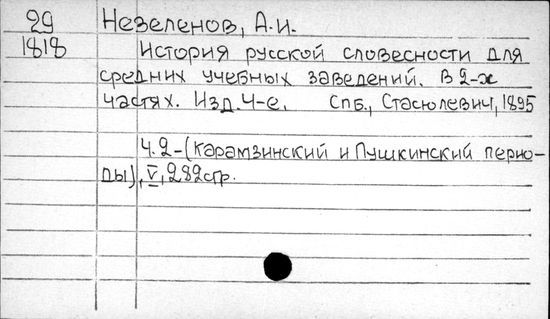 29 Незеленов, А.И.
1818 История русской словесности для
средних учебных заведений. В 2-х
частях. Изд. 4-е. Спб., Стасюлевич, 1895
Ч. 2-(Карамзинский и Пушкинский перио-
ды), V, 282стр.